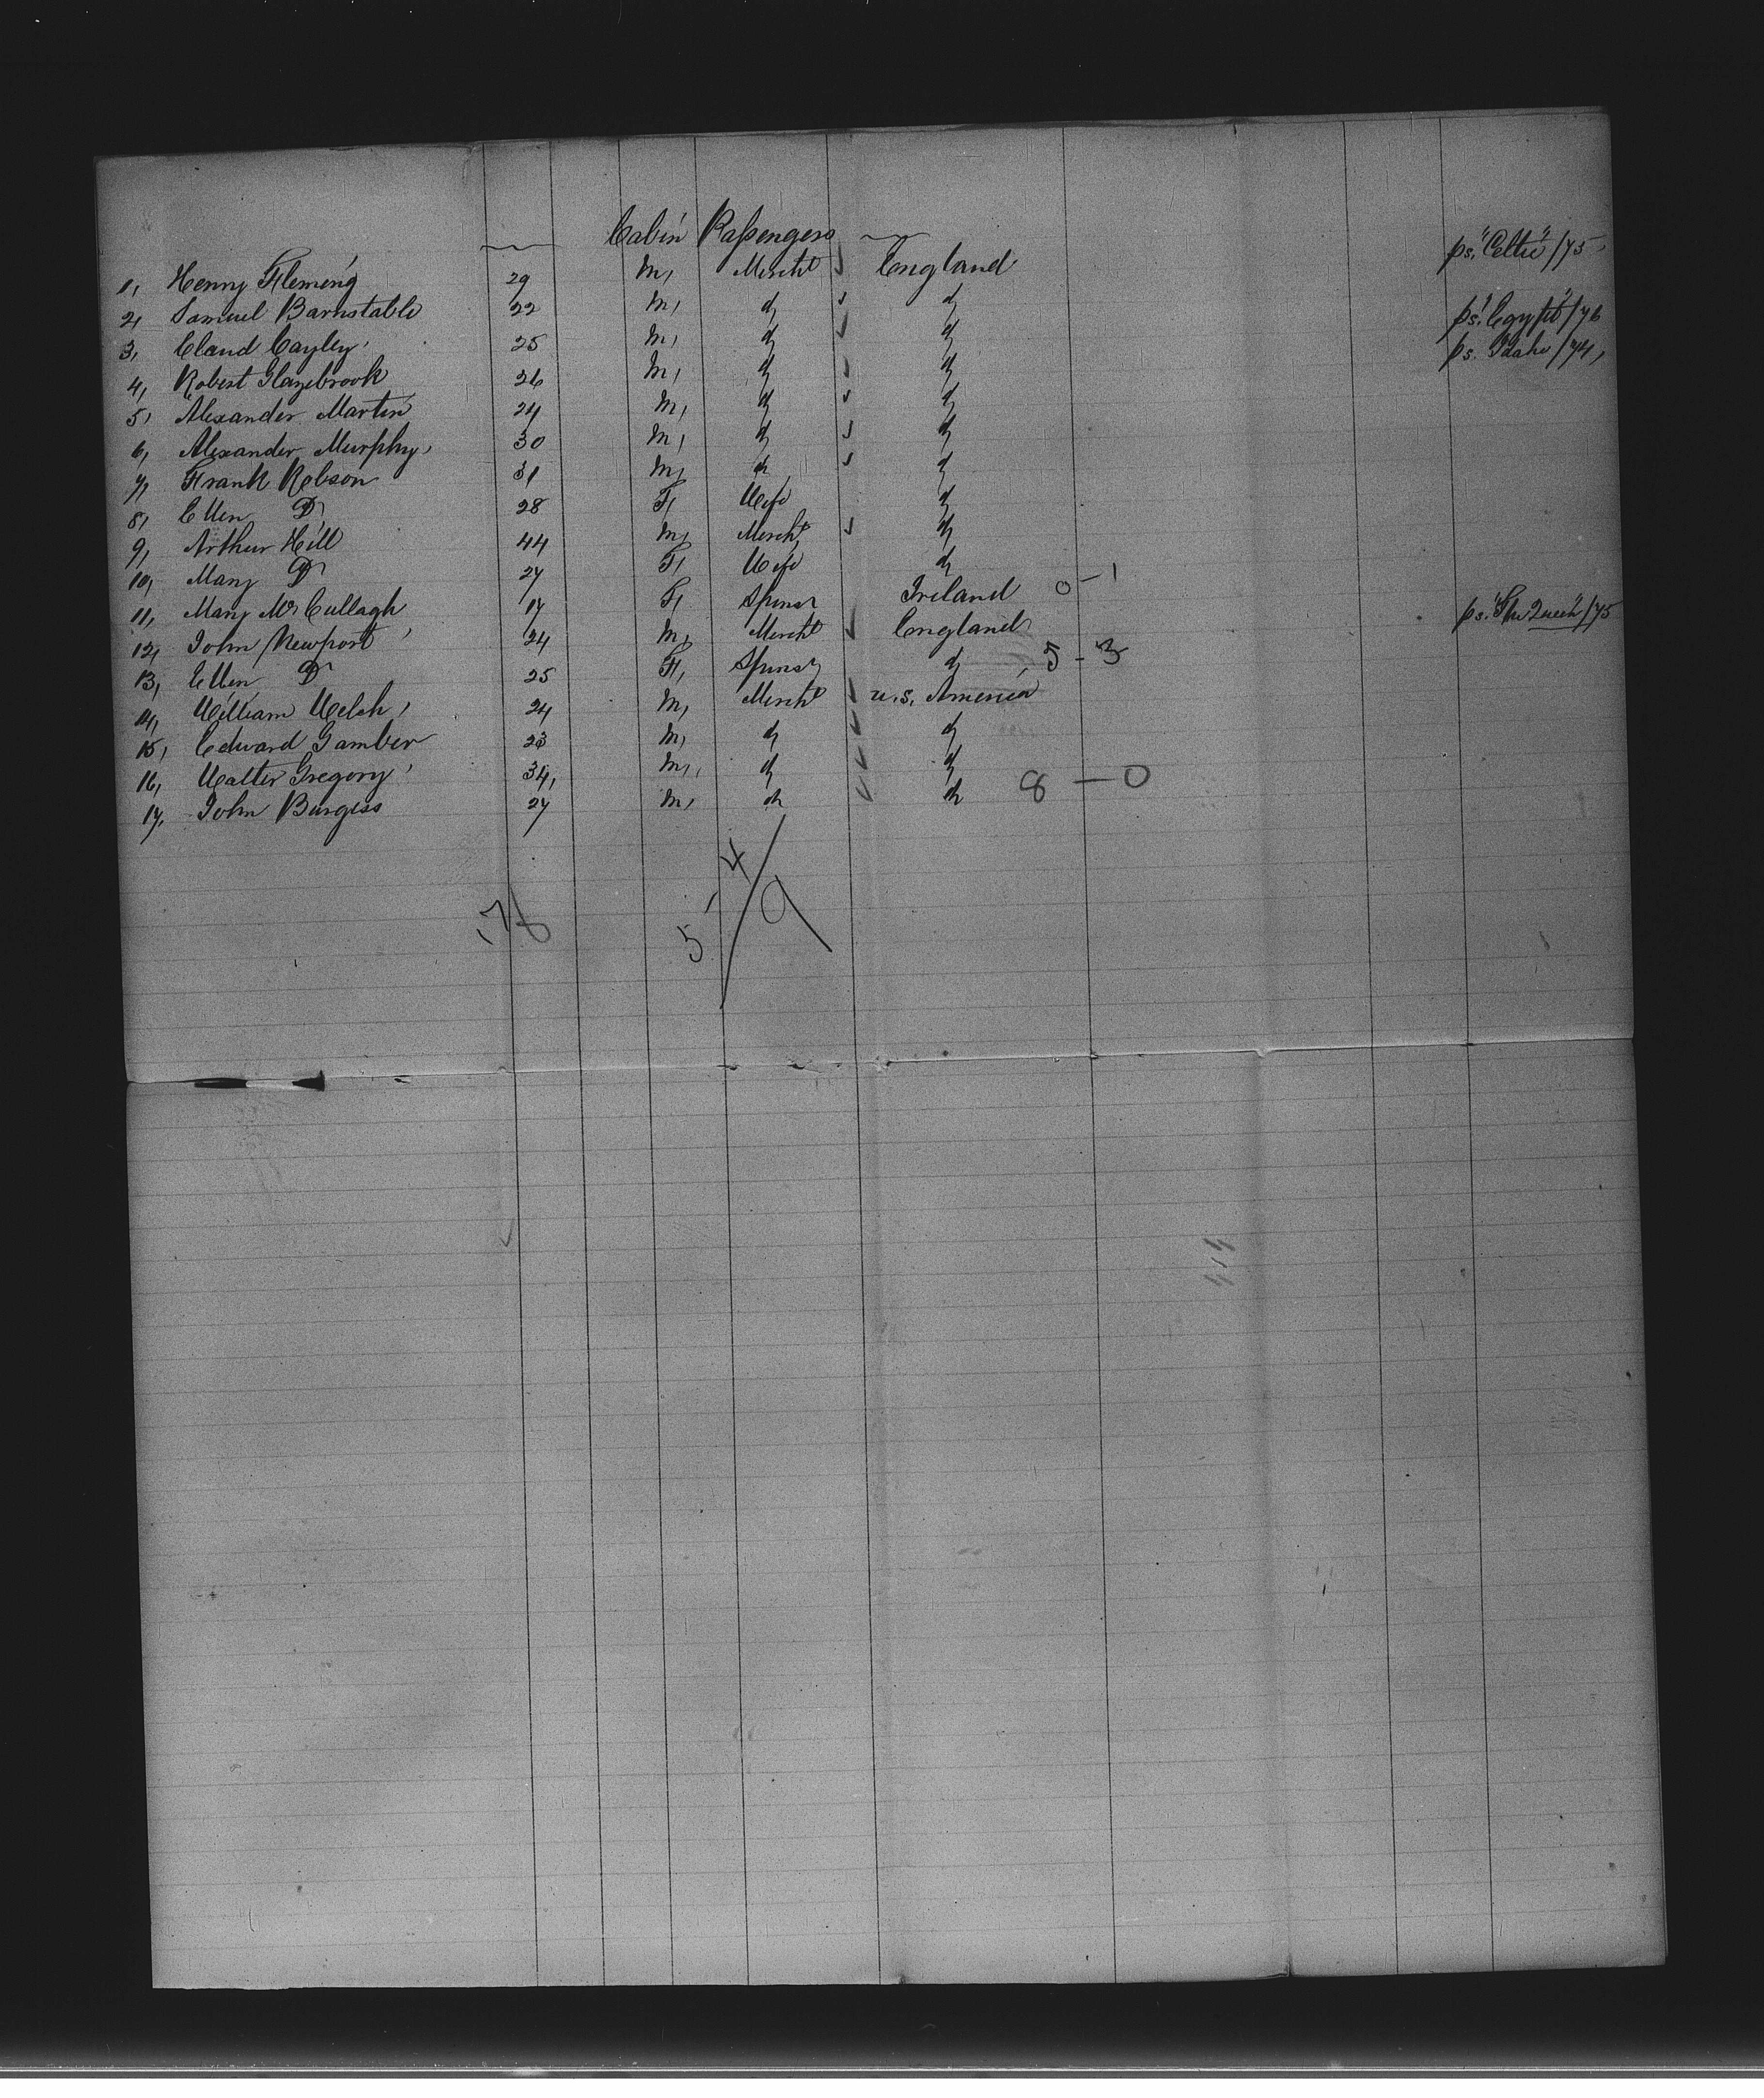 Cabin Passengers
1, Henry Fleming 29 M, Mercht England ps. "Celtic"/75
2, Samuel Barnstable 22 M, do do
3, Claud Cayley 25 M, do do ps. "Egypt"/76
4, Robert Glazebrook 26 M, do do ps. Idaho/74,
5, Alexander Martin 24 M, do do
6, Alexander Murphy 30 M, do do
7, Frank Robson 31 M, do do
8, Ellen Do 28 F, Wife do
9, Arthur Hill 44 M, Mercht do
10, Mary Do 27 F, Wife do
11, Mary McCullagh 17 F, Spinsr Ireland 0-1
12, John Newport 24 M, Mercht England ps. "The Queen"/75
13, Ellen Do 25 F, Spinsr do 5-3
14, William Welch 24 M, Mercht U.S. America
15, Edward Gamber 23 M, do do
16, Walter Gregory 34, M, do do
17, John Burgess 27 M, do do 8-0
5-4/9